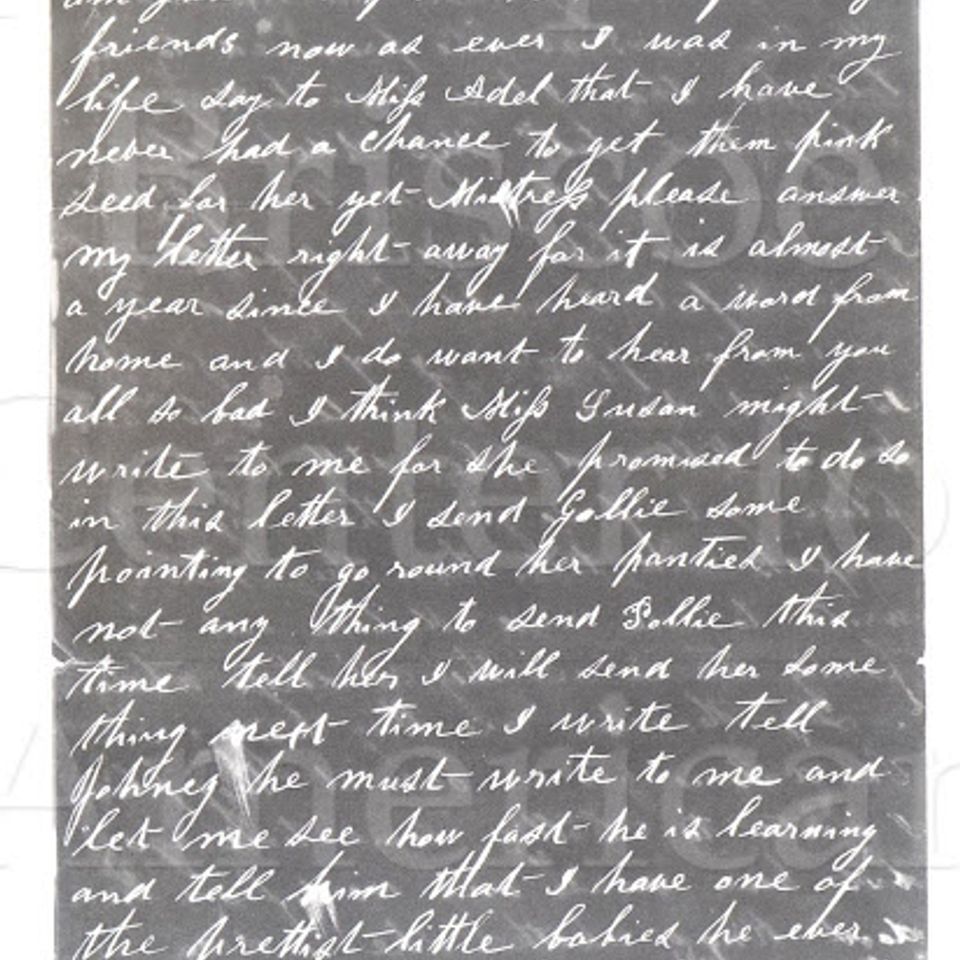 friends now as ever I was in my
life say to Miss Adel that I have
never had a chance to get them pink
seed for her yet Mistress please answer
my letter right away for it is almost
a year since I have heard a word from
home and I do want to hear from you
all so bad I think Miss Susan might
write to me for she promised to do so
in this letter I send Gollie some
pointing to go round her panties I have
not any thing to send Pollie this
time tell her I will send her some
thing next time I write tell
Johney he must write to me and
let me see how fast he is learning
and tell him that I have one of
the prettist little babies he ever
Briscoe
Center for
American